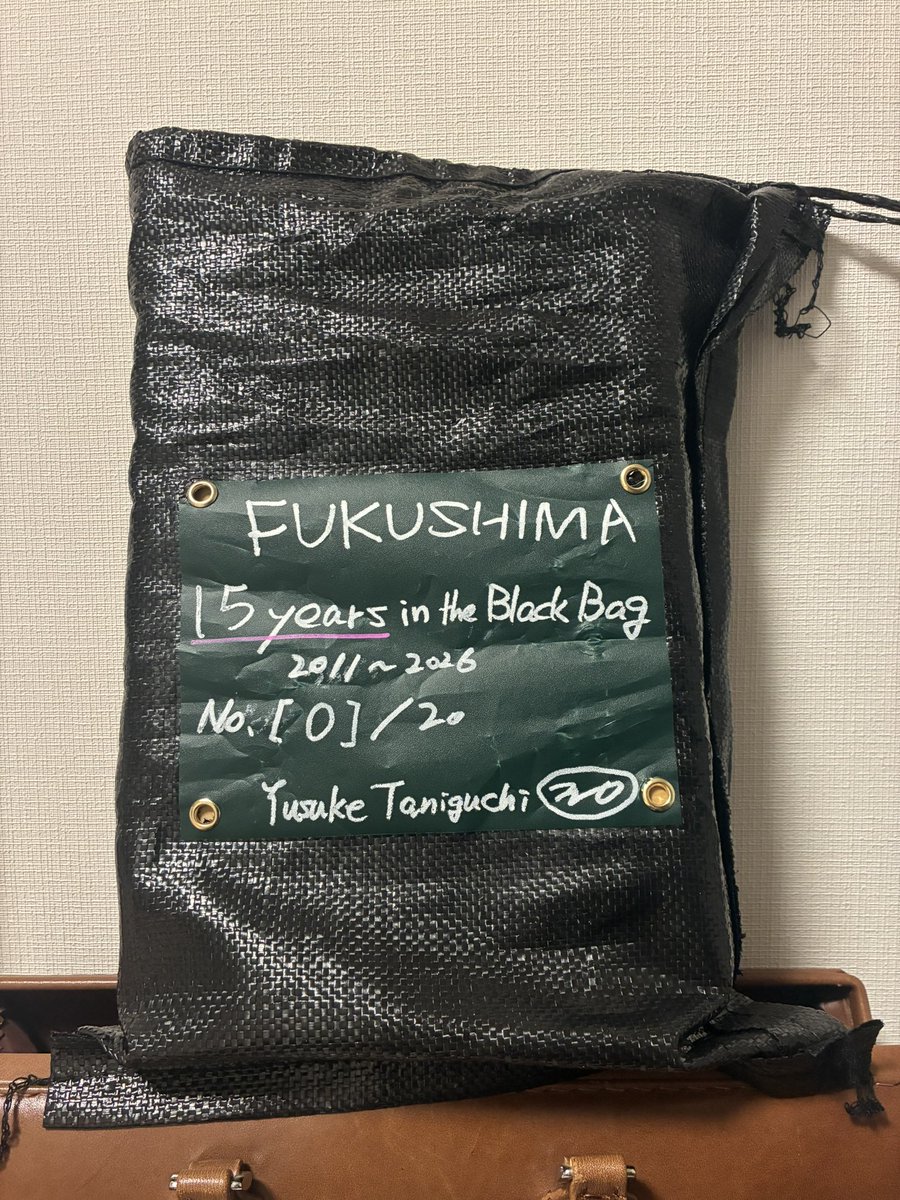 FUKUSHIMA
15 years in the Black Bag
2011~2026
No. [0]/20
Yusuke Taniguchi